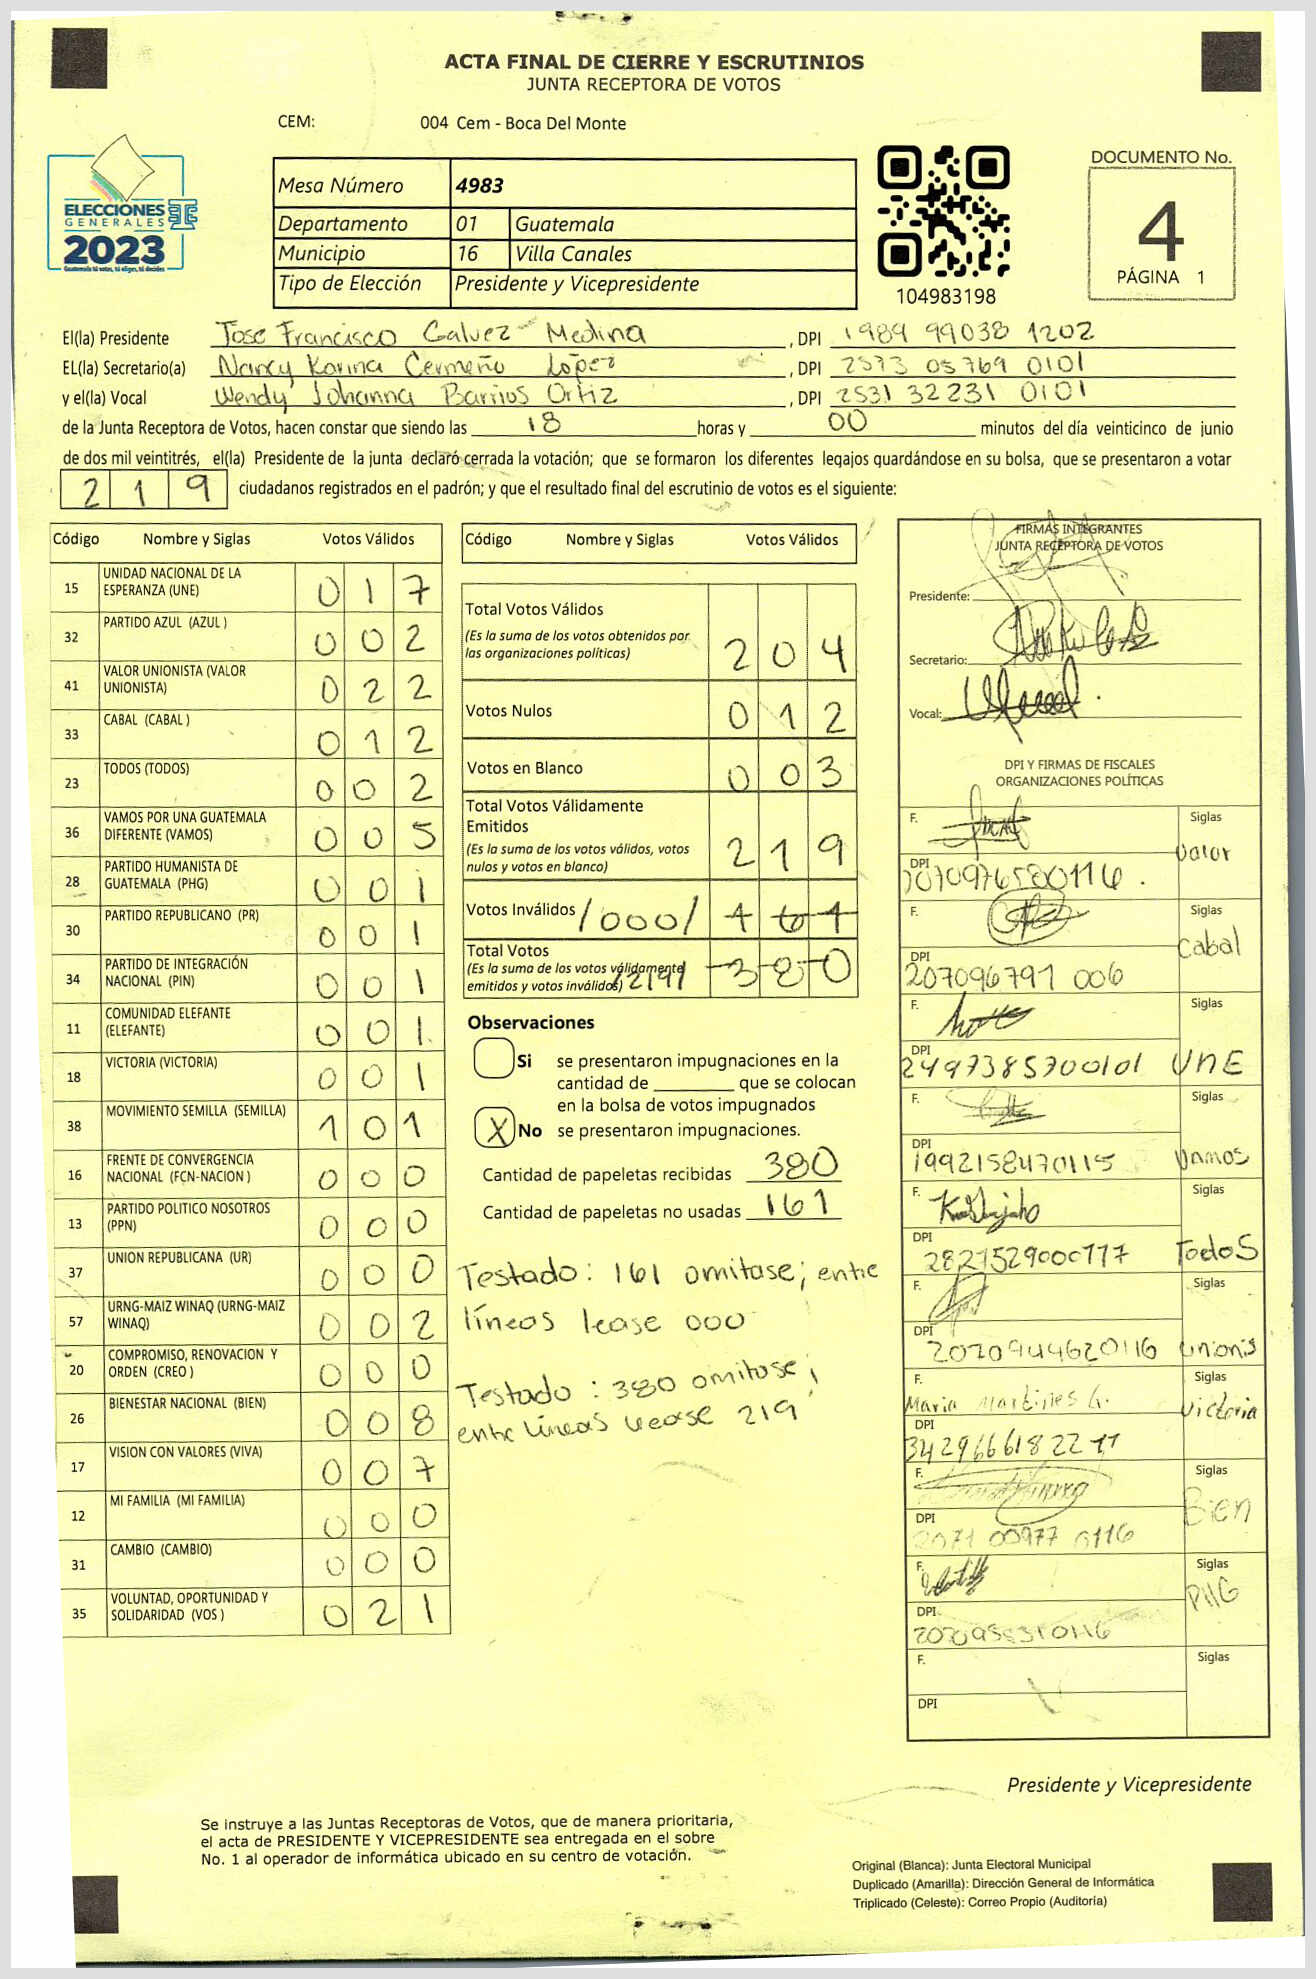 ACTA FINAL DE CIERRE Y ESCRUTINIOS
JUNTA RECEPTORA DE VOTOS
CEM: 004 Cem - Boca Del Monte
ELECCIONES
GENERALES
2023
Guatemala tú votas, tú eliges, tú decides
Mesa Número 4983
Departamento 01 Guatemala
Municipio 16 Villa Canales
Tipo de Elección Presidente y Vicepresidente
104983198
DOCUMENTO No.
4
PÁGINA 1
El(la) Presidente Jose Francisco Galvez Medina , DPI 1989 99038 1202
EL(la) Secretario(a) Nancy Karina Cermeño López , DPI 2573 05769 0101
y el(la) Vocal Wendy Johanna Barrios Ortiz , DPI 2531 32231 0101
de la Junta Receptora de Votos, hacen constar que siendo las 18 horas y 00 minutos del día veinticinco de junio
de dos mil veintitrés, el(la) Presidente de la junta declaró cerrada la votación; que se formaron los diferentes legajos guardándose en su bolsa, que se presentaron a votar
219 ciudadanos registrados en el padrón; y que el resultado final del escrutinio de votos es el siguiente:
Código Nombre y Siglas Votos Válidos
15 UNIDAD NACIONAL DE LA
ESPERANZA (UNE) 017
32 PARTIDO AZUL (AZUL ) 002
41 VALOR UNIONISTA (VALOR
UNIONISTA) 022
33 CABAL (CABAL ) 012
23 TODOS (TODOS) 002
36 VAMOS POR UNA GUATEMALA
DIFERENTE (VAMOS) 005
28 PARTIDO HUMANISTA DE
GUATEMALA (PHG) 001
30 PARTIDO REPUBLICANO (PR) 001
34 PARTIDO DE INTEGRACIÓN
NACIONAL (PIN) 001
11 COMUNIDAD ELEFANTE
(ELEFANTE) 001
18 VICTORIA (VICTORIA) 001
38 MOVIMIENTO SEMILLA (SEMILLA) 101
16 FRENTE DE CONVERGENCIA
NACIONAL (FCN-NACION ) 000
13 PARTIDO POLITICO NOSOTROS
(PPN) 000
37 UNION REPUBLICANA (UR) 000
57 URNG-MAIZ WINAQ (URNG-MAIZ
WINAQ) 002
20 COMPROMISO, RENOVACION Y
ORDEN (CREO ) 000
26 BIENESTAR NACIONAL (BIEN) 008
17 VISION CON VALORES (VIVA) 007
12 MI FAMILIA (MI FAMILIA) 000
31 CAMBIO (CAMBIO) 000
35 VOLUNTAD, OPORTUNIDAD Y
SOLIDARIDAD (VOS ) 021
Código Nombre y Siglas Votos Válidos
Total Votos Válidos
(Es la suma de los votos obtenidos por
las organizaciones políticas) 204
Votos Nulos 012
Votos en Blanco 003
Total Votos Válidamente
Emitidos
(Es la suma de los votos válidos, votos
nulos y votos en blanco) 219
Votos Inválidos /000/ 161
Total Votos
(Es la suma de los votos válidamente
emitidos y votos inválidos) /219/ 380
Observaciones
Si se presentaron impugnaciones en la
cantidad de ________ que se colocan
en la bolsa de votos impugnados
X No se presentaron impugnaciones.
Cantidad de papeletas recibidas 380
Cantidad de papeletas no usadas 161
Testado: 161 omitase; entre
líneas lease 000
Testado: 380 omitase;
entre líneas lease 219
FIRMAS INTEGRANTES
JUNTA RECEPTORA DE VOTOS
Presidente:
Secretario:
Vocal:
DPI Y FIRMAS DE FISCALES
ORGANIZACIONES POLÍTICAS
F. Siglas
Valor
DPI
F. Siglas
Cabal
DPI
207096791 006
F. Siglas
DPI
2497385700101 UNE
F. Siglas
DPI
1992158470115 Vamos
F. Siglas
DPI
2821529000777 Todos
F. Siglas
DPI
2020944620116 Unionis
F. Siglas
Maria Martinez G. Victoria
DPI
342966618 22 11
F. Siglas
Bien
DPI
2071 00977 0116
F. Siglas
PHG
DPI
F. Siglas
DPI
Presidente y Vicepresidente
Se instruye a las Juntas Receptoras de Votos, que de manera prioritaria,
el acta de PRESIDENTE Y VICEPRESIDENTE sea entregada en el sobre
No. 1 al operador de informática ubicado en su centro de votación.
Original (Blanca): Junta Electoral Municipal
Duplicado (Amarilla): Dirección General de Informática
Triplicado (Celeste): Correo Propio (Auditoría)